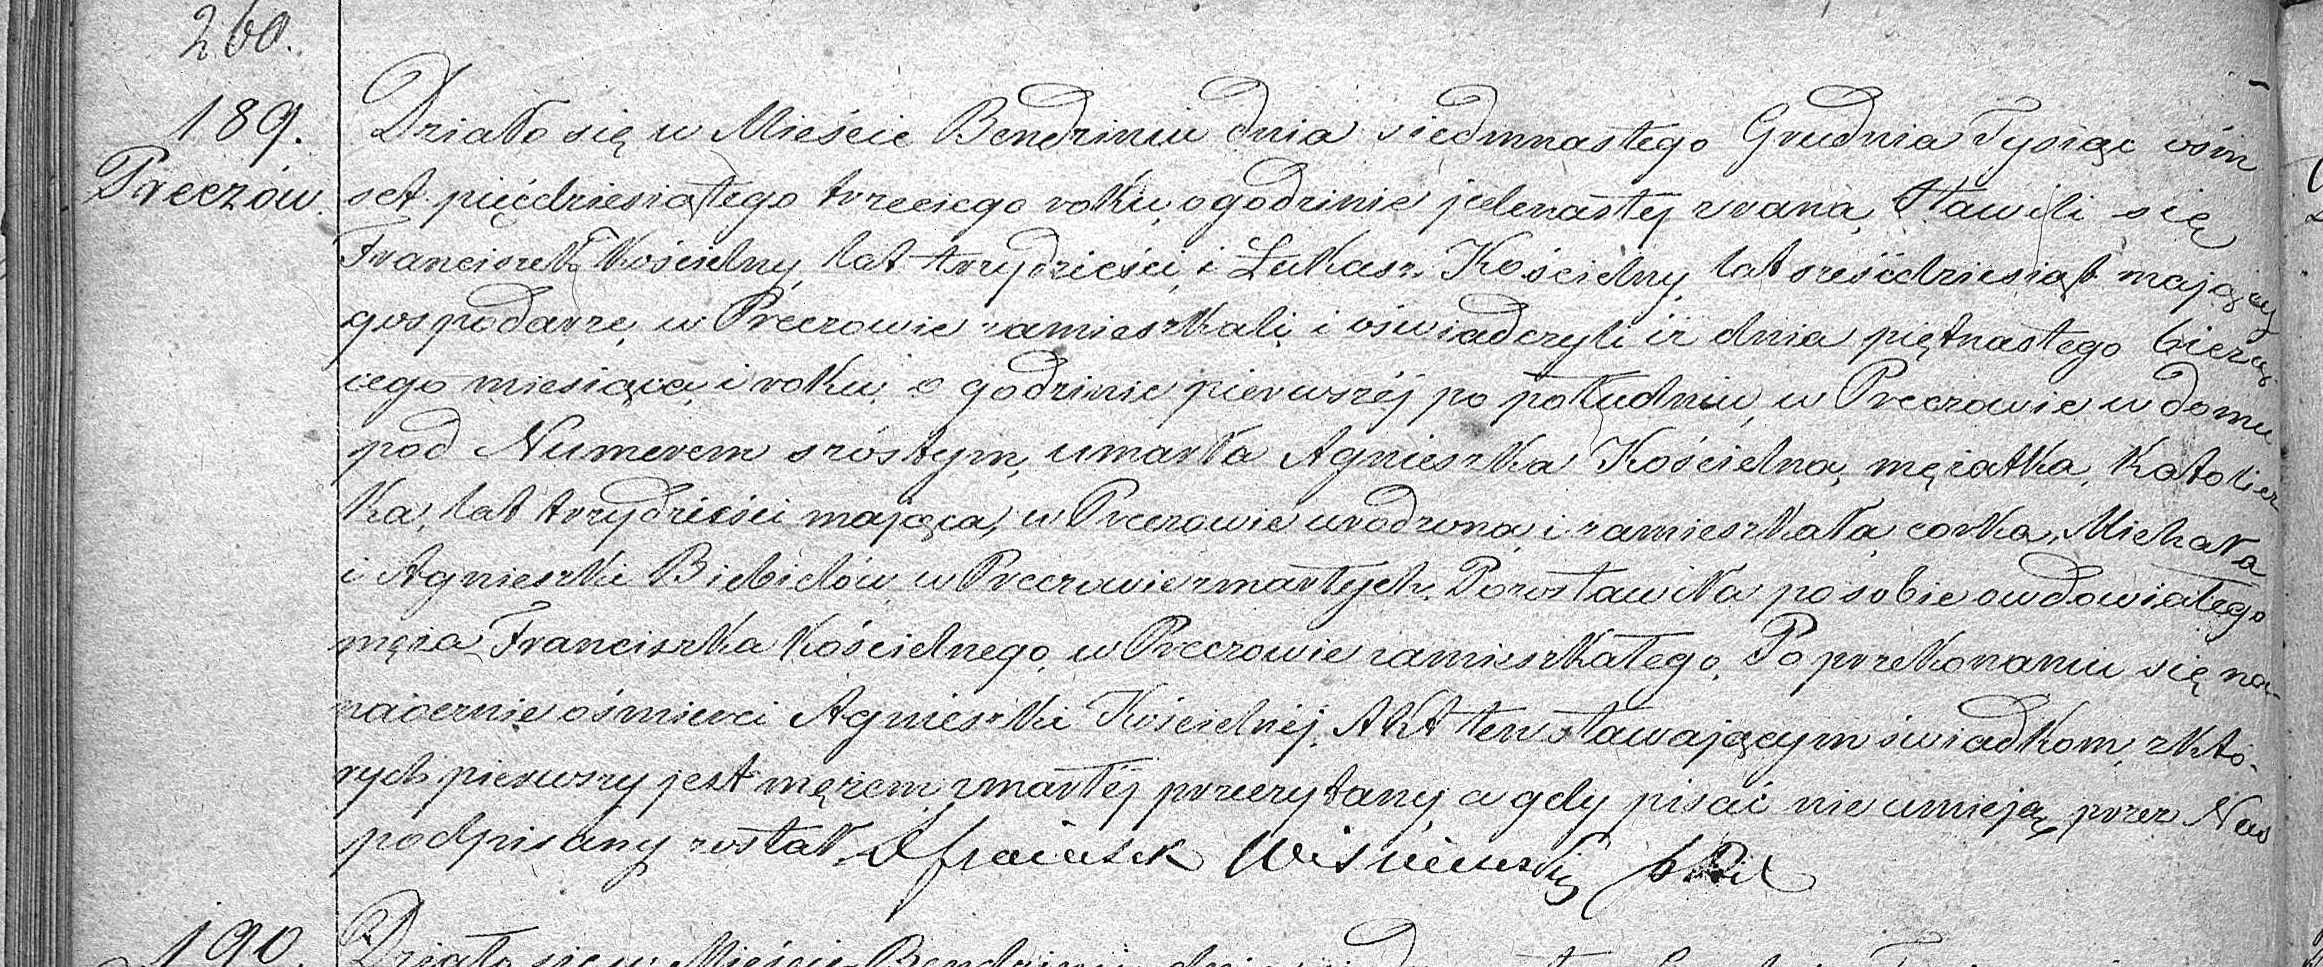 260.
189.
Preczów.
Działo się w Mieście Bendziniu dnia siedmnastego Grudnia Tysiąc ośm
set pięćdziesiątego trzeciego roku, o godzinie jedenastej z rana, Stawili się
Franciszek Kościelny, lat trzydzieści, i Łukasz Kościelny, lat sześćdziesiąt mający
gospodarze, w Preczowie zamieszkali, i oświadczyli iż dnia piętnastego bieżą
cego miesiąca, i roku, o godzinie pierwszéj po południu, w Preczowie w domu
pod Numerem szóstym, umarła Agnieszka Kościelna, mężatka, Katolicz
ka, lat trzydzieści mająca, w Preczowie urodzona, i zamieszkała, corka, Michała
i Agnieszki Biebielów w Preczowie zmarłych. Pozostawiła po sobie owdowiałego
męża Franciszka Kościelnego, w Preczowie zamieszkałego, Po przekonaniu się na-
naocznie o śmierci Agnieszki Kościelnéj, Akt ten stawającym świadkom, z któ-
rych pierwszy jest mężem zmarłéj przeczytany, a gdy pisać nie umieją, przez Nas
podpisany został. X Franciszek Wiśniewski
190.
Działo się w Mieście Bendziniu